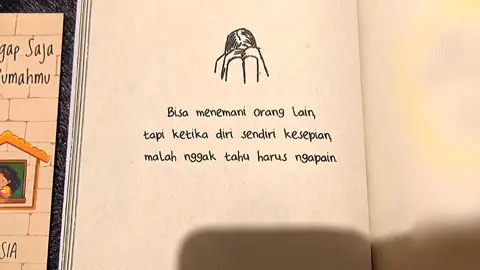 gap Saja
umahmu
Bisa menemani orang lain,
tapi ketika diri sendiri kesepian,
malah nggak tahu harus ngapain.
SIA